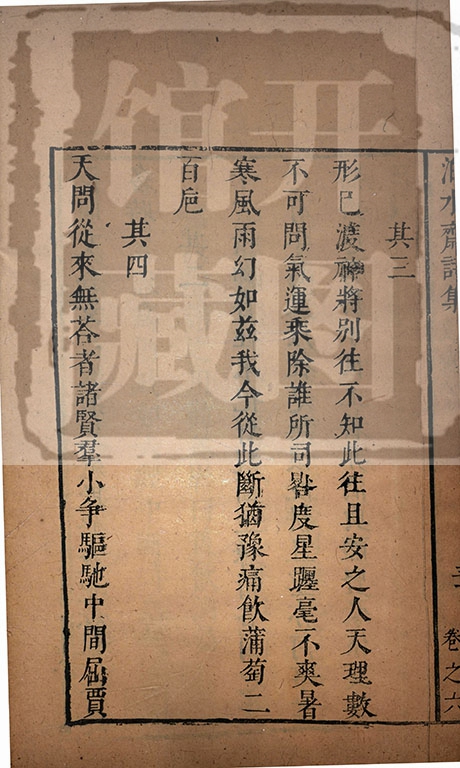 詩集
卷之六
其三
形已渡神將別往不知此往且安之人天理數
不可問氣運乘除誰所司晷度星躔毫不爽暑
寒風雨幻如茲我今從此斷猶豫痛飲蒲萄二
百巵
其四
天問從來無荅者諸賢羣小争驅馳中間屈賈
开图
馆藏